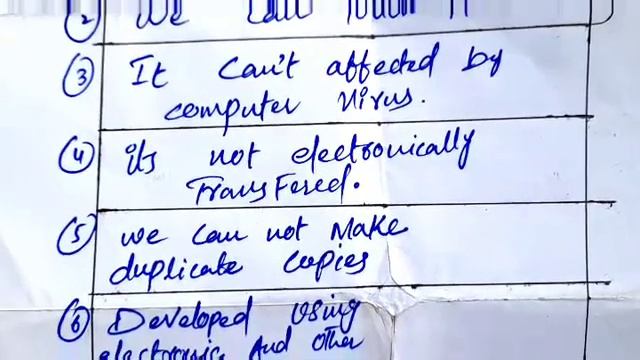 (2) We can touch it
(3) It can't affected by
computer virus.
(4) its not electronically
Transfered.
(5) we can not Make
duplicate copies
(6) Developed Using
electronic And other